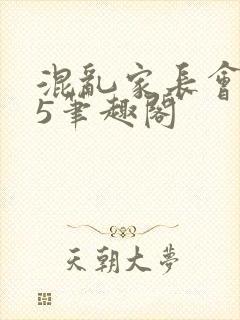 混亂家長會
5筆趣閣
天朝大夢